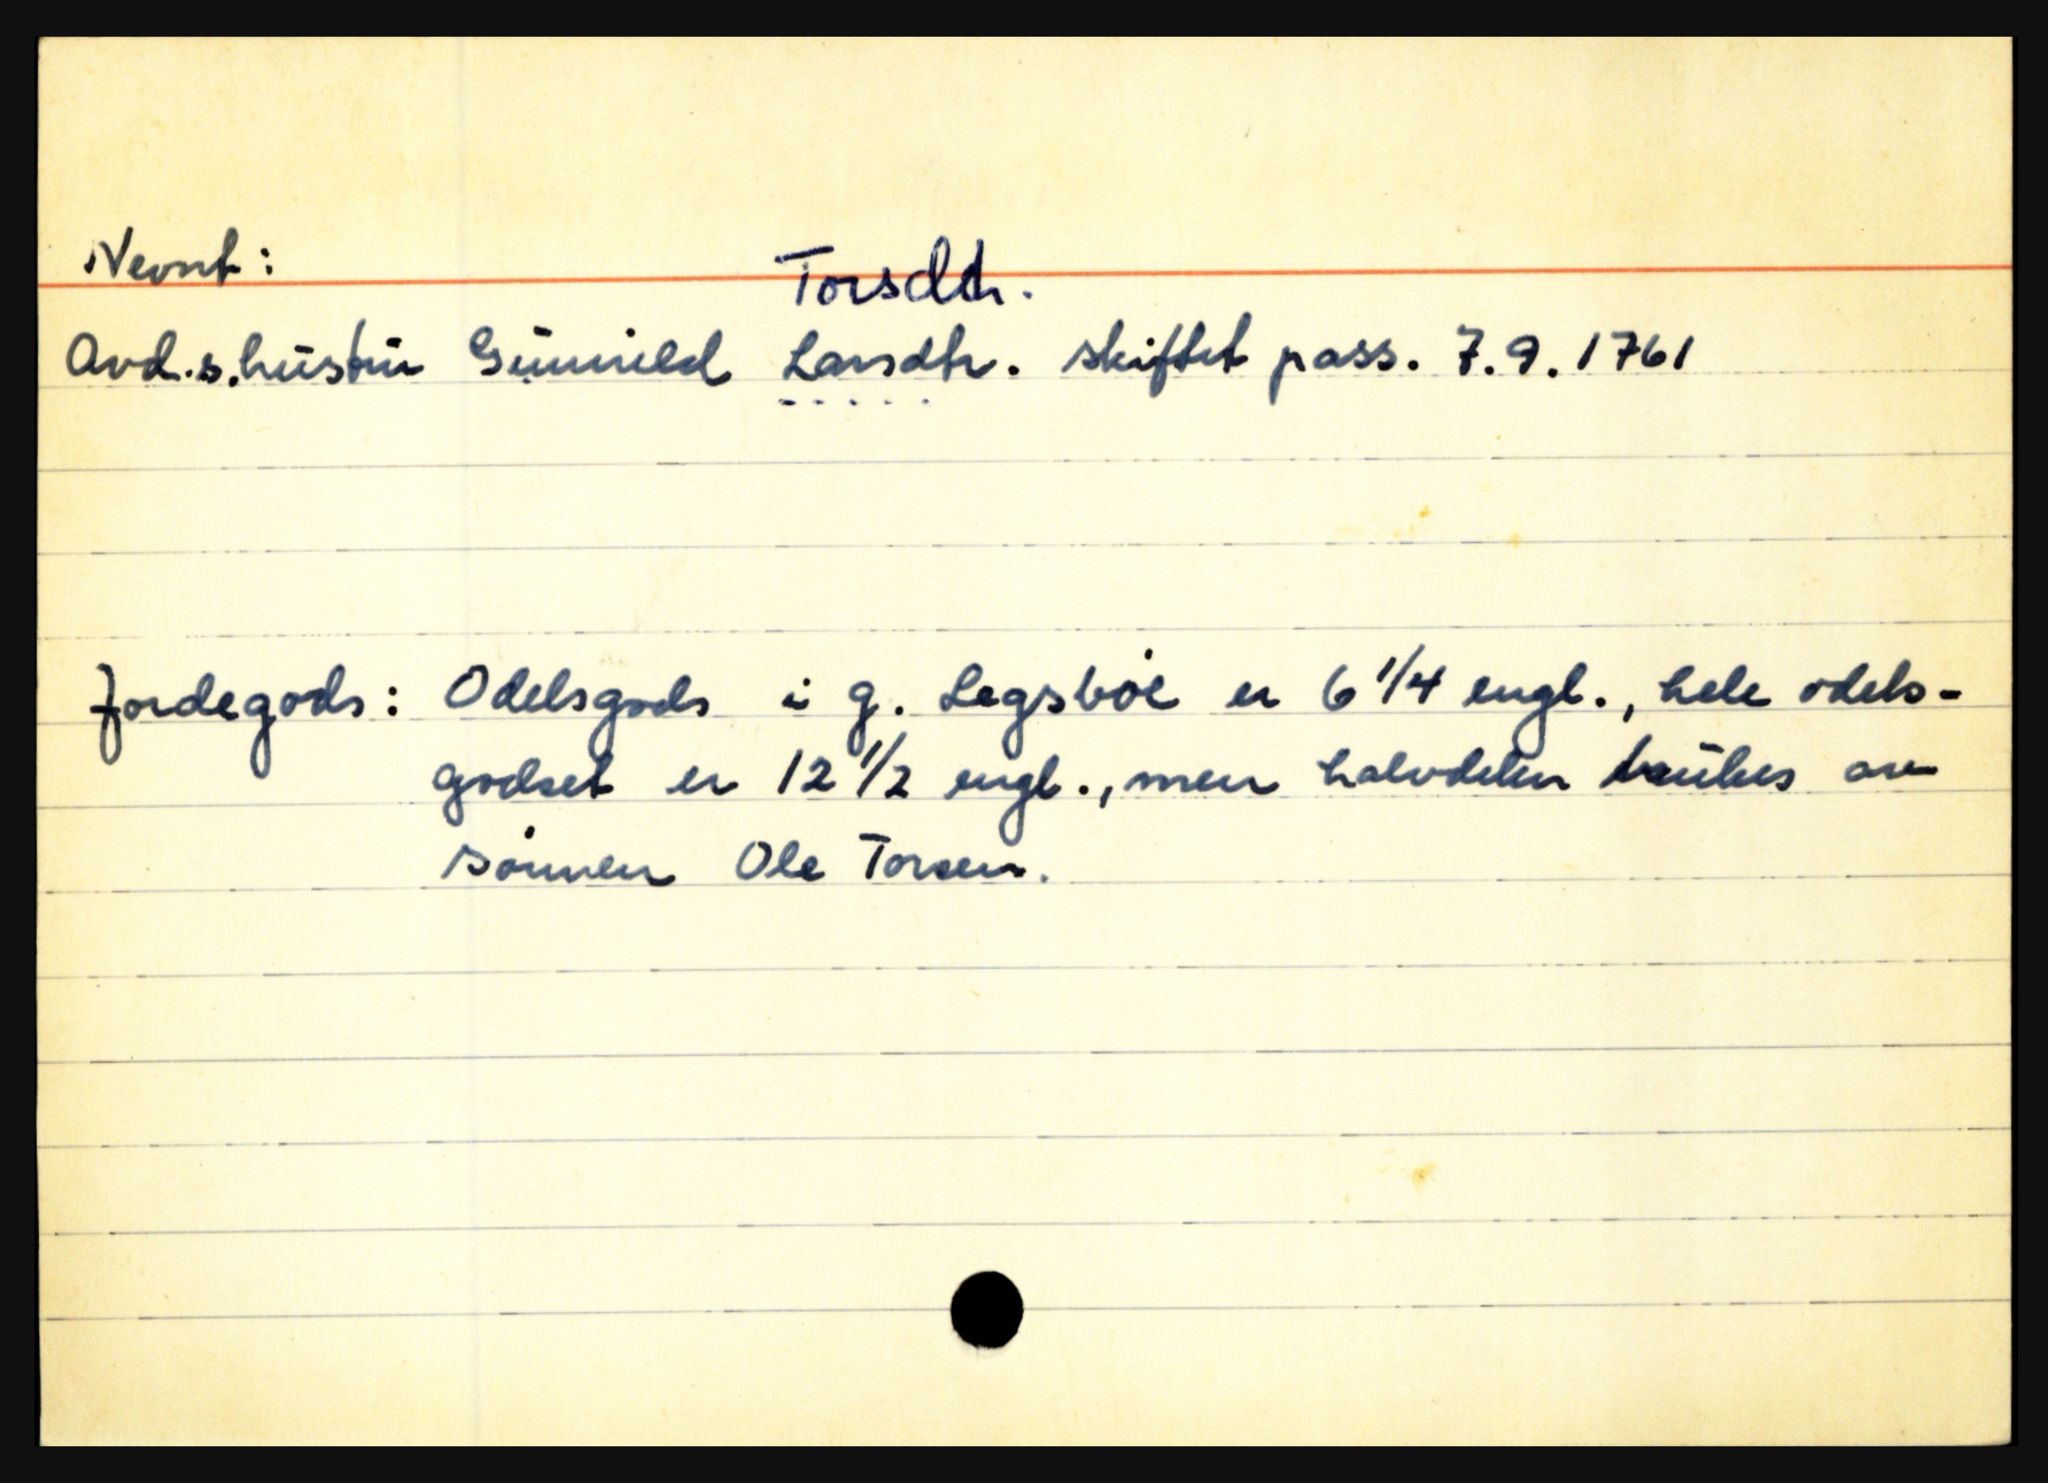 Nevnt:
Torsdtr.
Avd.s. hustru Gunnild Larsdtr. skiftet pass. 7.9.1761
Jordegods: Odelsgods i g. Legsböe er 6 1/4 engl., hele odels-
godset er 12 1/2 engl., men halvdelen brukes av
sönnen Ole Torsen.